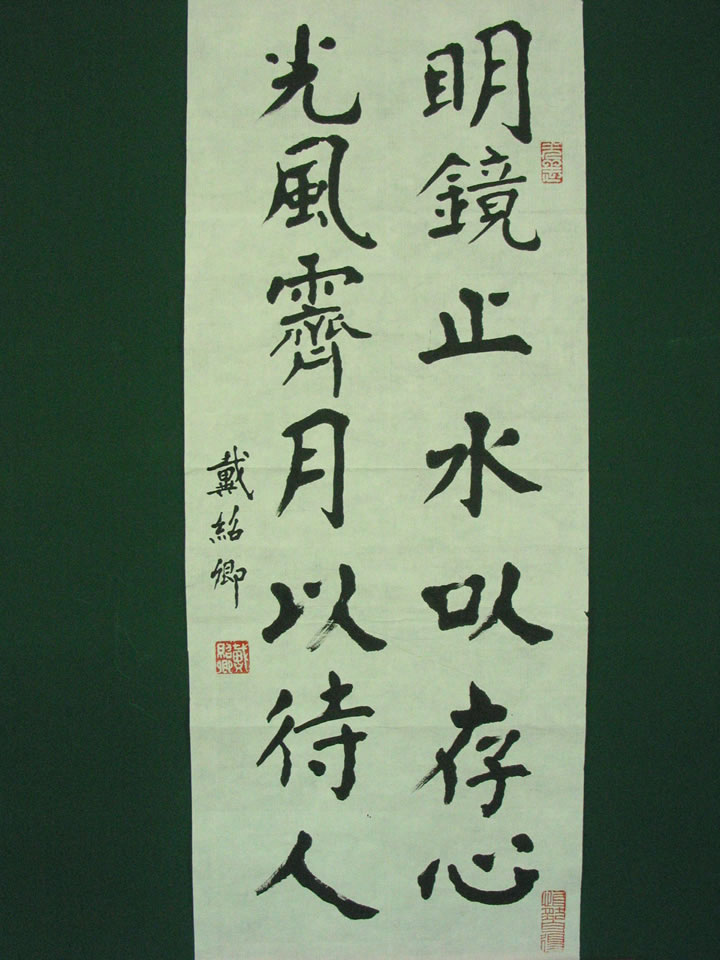 明鏡止水以存心
光風霽月以待人
戴紹卿